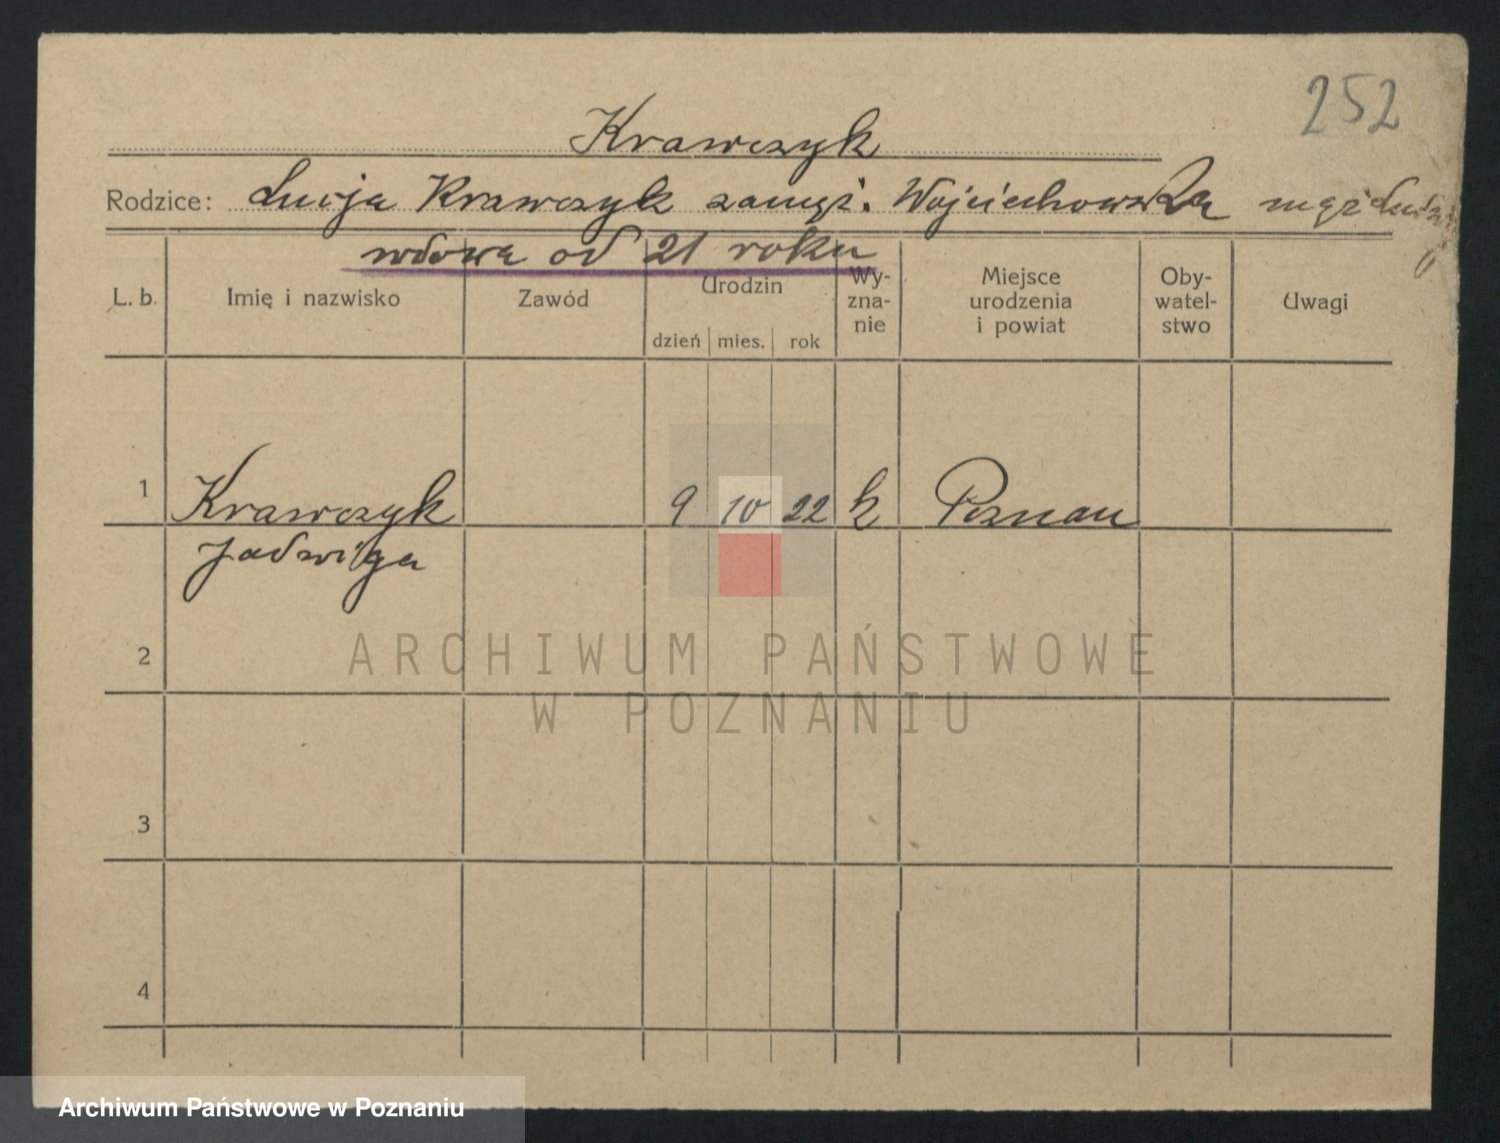 252
Krawczyk
Rodzice: Lucja Krawczyk zamęż. Wojciechowska mąż
wdowa od 21 roku
L. b. Imię i nazwisko Zawód Urodzin dzień mies. rok Wy-zna-nie Miejsce urodzenia i powiat Oby-watel-stwo Uwagi
1 Krawczyk 9 10 22 k Poznan
Jadwiga
2
ARCHIWUM PAŃSTWOWE
W POZNANIU
3
4
Archiwum Państwowe w Poznaniu